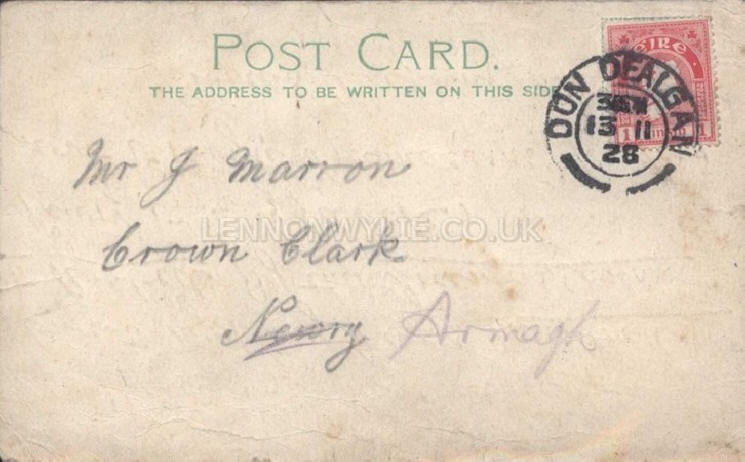 POST CARD.
THE ADDRESS TO BE WRITTEN ON THIS SIDE
ÉIRE
DUN DEALGAN
13 11
28
1 1
Mr J Marron
LENNONWYLIE.CO.UK
Crown Clark
Newry Armagh